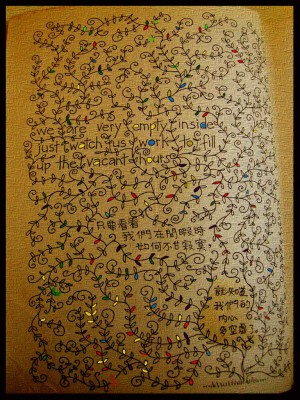 we are very empty inside
just watch us work to fill
up the vacant hours
只要看看
我們在閒暇時
如何不甘寂寞
就知道
我們的
內心
多空虛